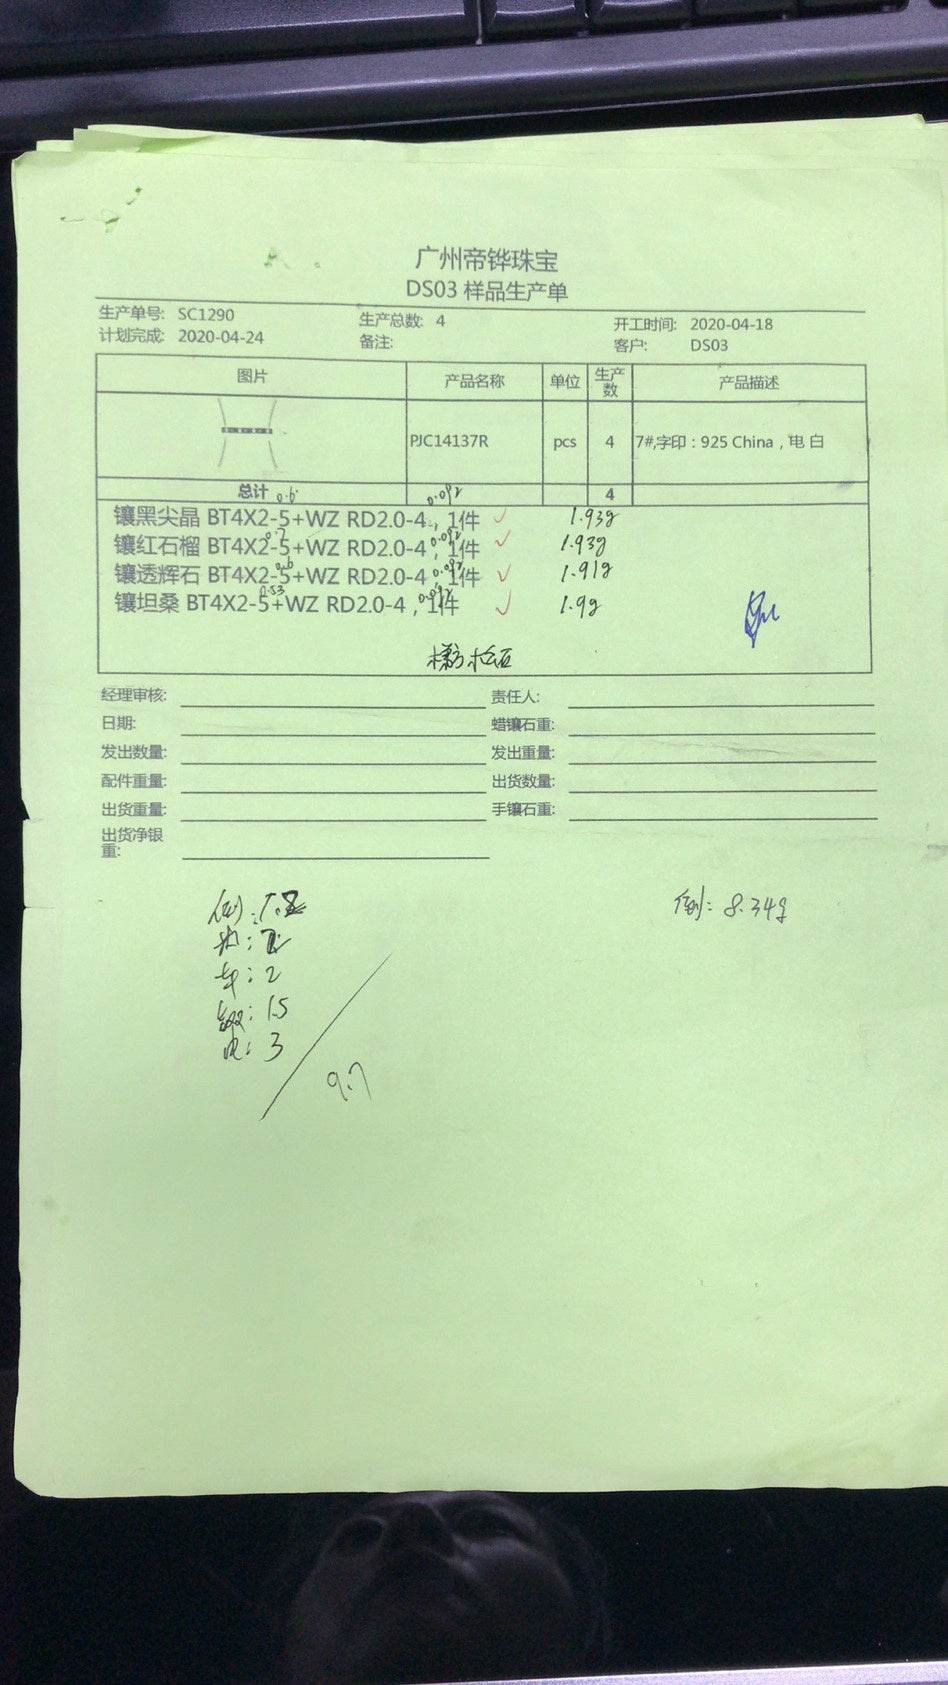 广州帝铧珠宝
DS03 样品生产单
生产单号: SC1290 生产总数: 4 开工时间: 2020-04-18
计划完成: 2020-04-24 备注: 客户: DS03
图片 产品名称 单位 生产数 产品描述
PJC14137R pcs 4 7#,字印：925 China，电 白
总计 4
0.6 0.092
镶黑尖晶 BT4X2-5+WZ RD2.0-4，1件 1.93g
0.7 0.092
镶红石榴 BT4X2-5+WZ RD2.0-4，1件 1.93g
0.6 0.092
镶透辉石 BT4X2-5+WZ RD2.0-4，1件 1.91g
0.53 0.092
镶坦桑 BT4X2-5+WZ RD2.0-4，1件 1.9g
经理审核: 责任人:
日期: 蜡镶石重:
发出数量: 发出重量:
配件重量: 出货数量:
出货重量: 手镶石重:
出货净银重:
倒: 8.34g
车: 2
1.5
电: 3
9.7